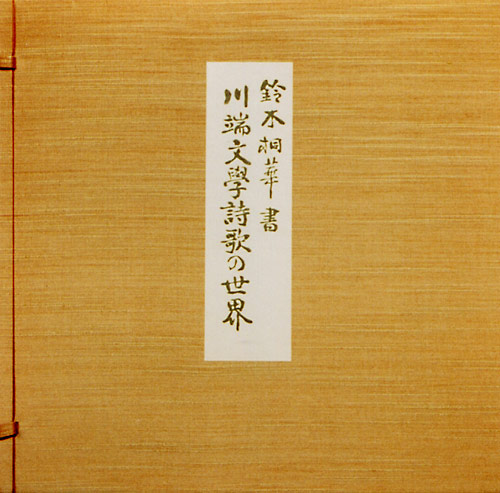 鈴木桐華書
川端文學詩歌の世界